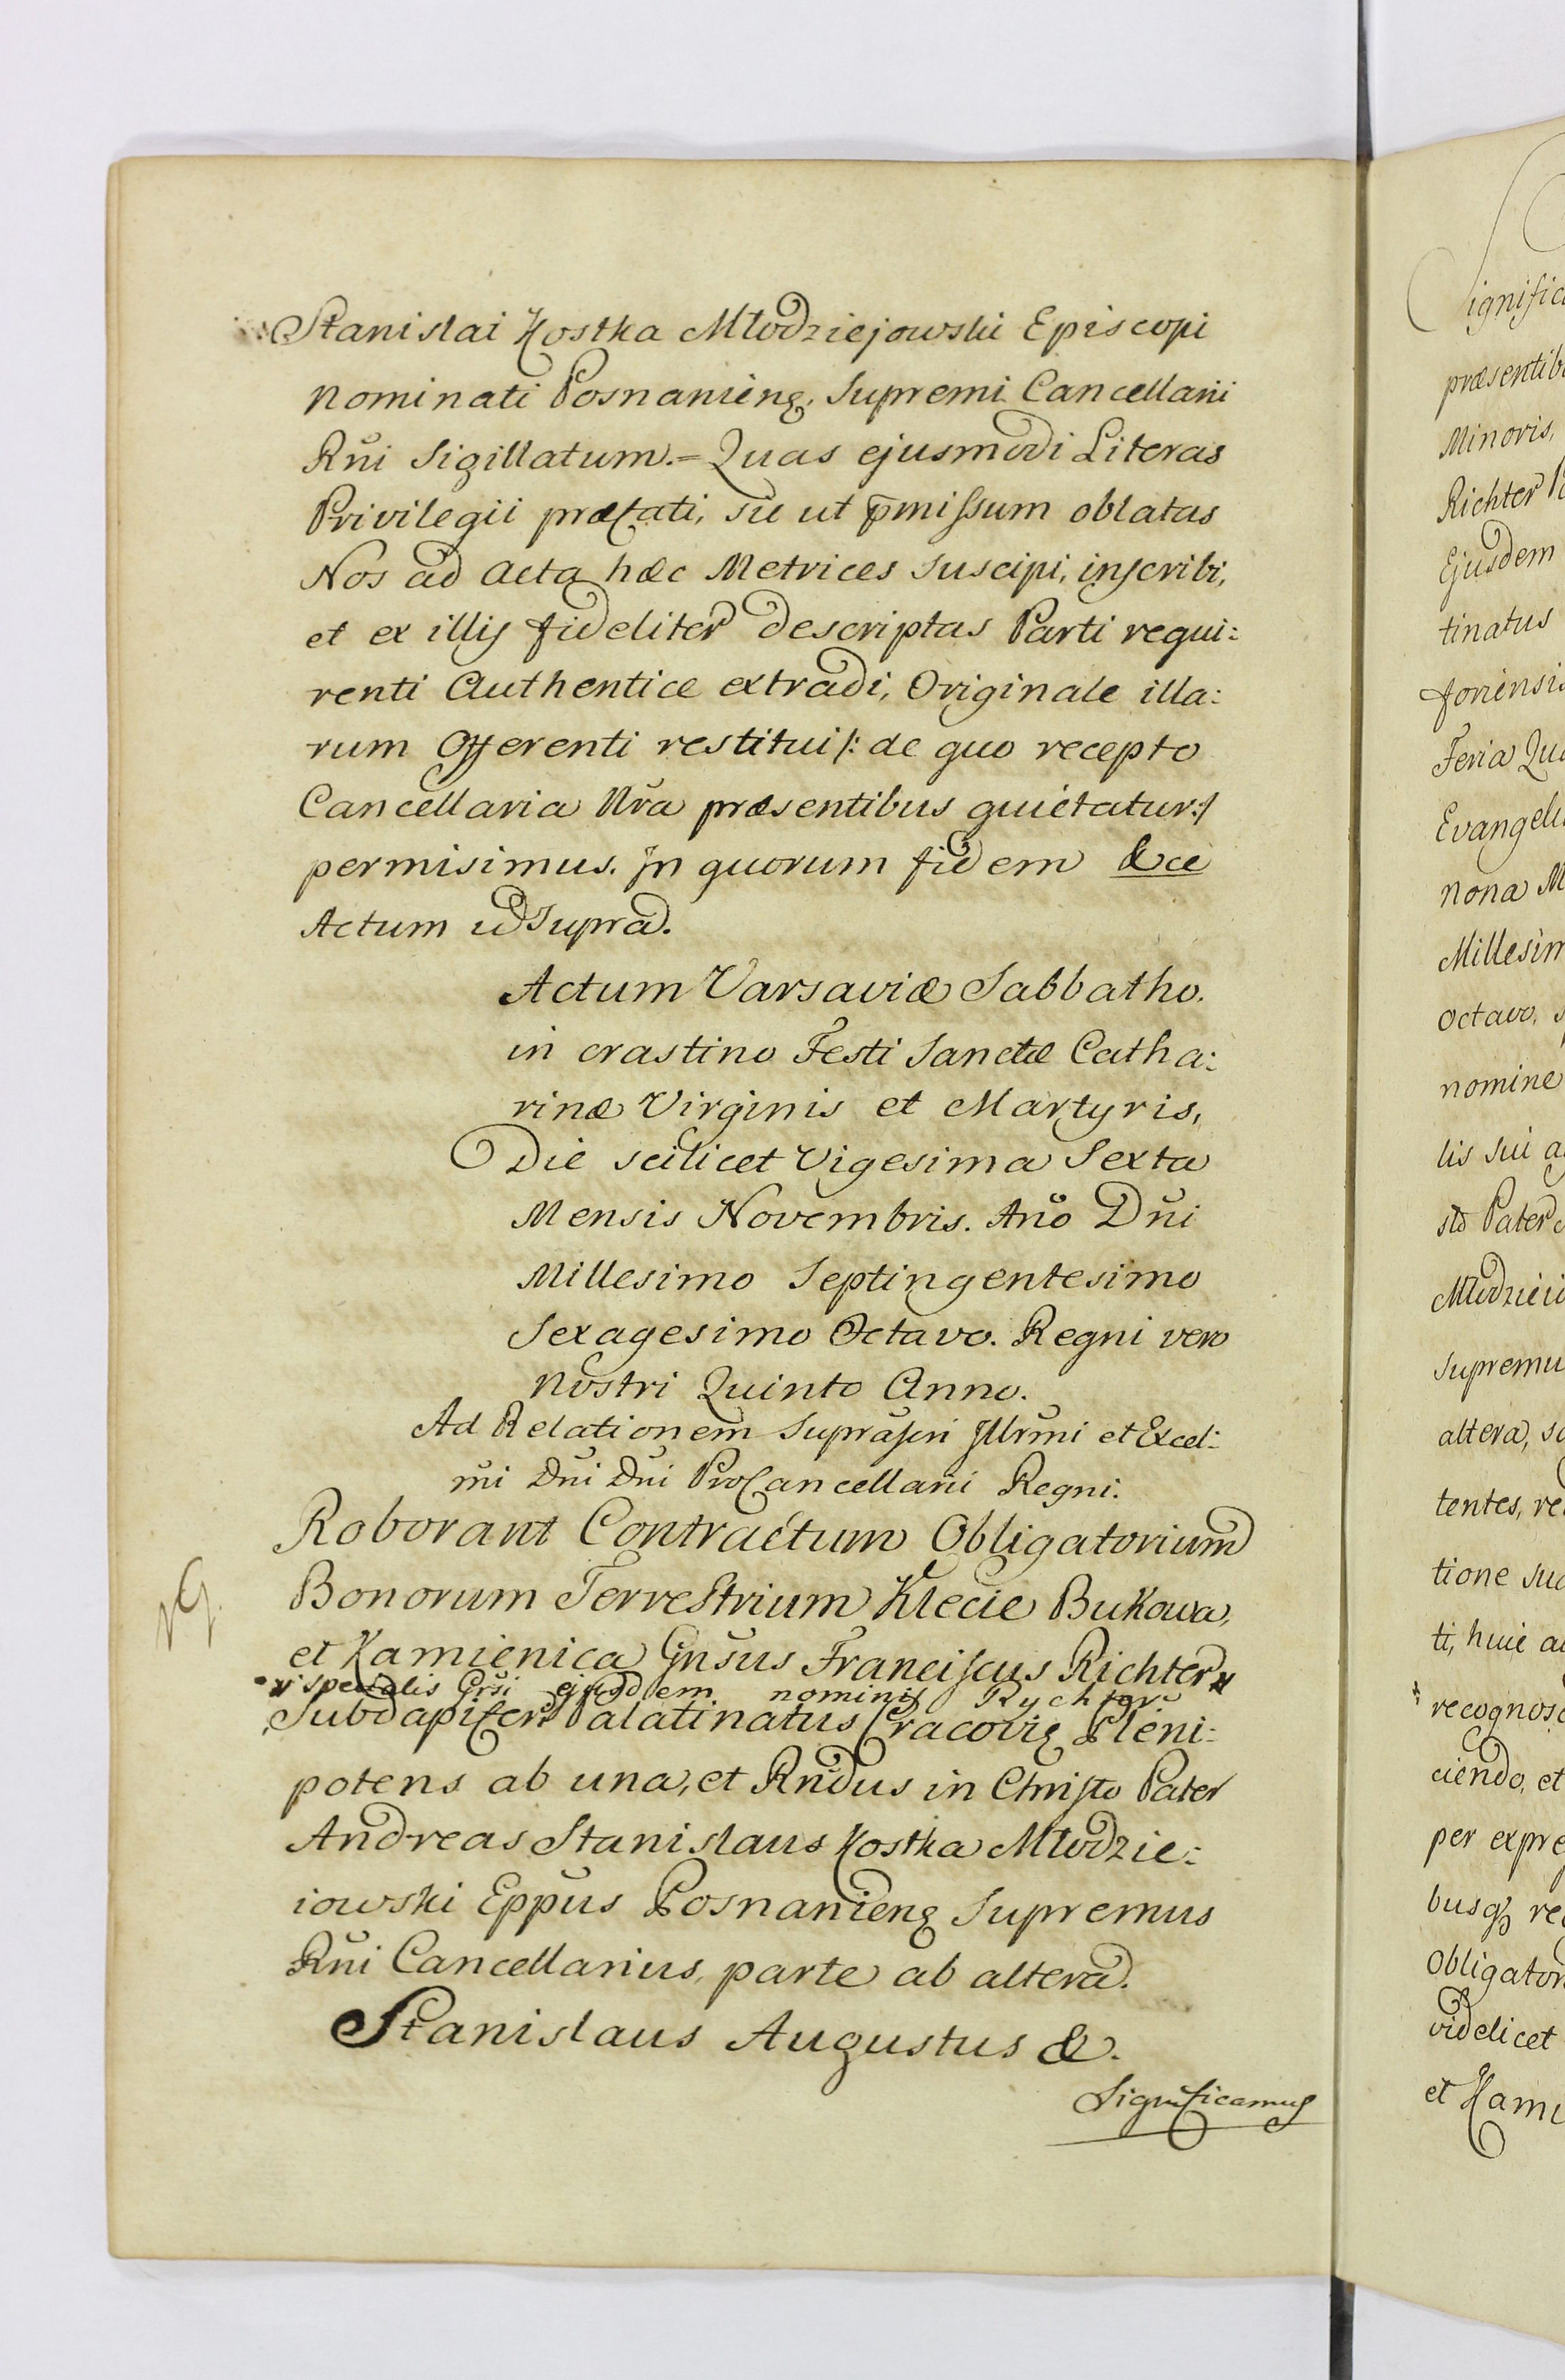 Stanislai Kostka Młodziejowski Episcopi
Nominati Posnanieng. Supremi Cancellarii
Rñi Sigillatum.= Quas ejusmodi Literas
Privilegii præfati, sic ut p̄missum oblatas
Nos ad Acta hæc Metrices suscipi, inscribi,
et ex illis fideliter descriptas Parti requi:
renti Authentice extradi, Originale illa:
rum Offerenti restitui /: de quo recepto
Cancellaria Nra præsentibus quietatur :/
permisimus. In quorum fidem &ce
Actum ut Supra.
Actum Varsaviæ Sabbatho.
in crastino Festi Sanctæ Catha:
rinæ Virginis et Martyris,
Die scilicet Vigesima Sexta
Mensis Novembris. Año Dñi
Millesimo Septingentesimo
Sexagesimo Octavo. Regni vero
Nostri Quinto Anno.
Ad Relationem Suprascri Illrmi et Excel:
mi Dñi Dñi ProCancellarii Regni.
Roborant Contractum Obligatorium
Bonorum Terrestrium Klecie Bukowa,
et Kamienica Gnsus Franciscus Richter
specialis Grsi ejusdem nominis Rychter
Subdapiferi Palatinatus Cracovię Pleni:
potens ab una, et Rñdus in Christo Pater
Andreas Stanislaus Kostka Młodzie:
iowski Eppus Posnanieng Supremus
Rñi Cancellarius, parte ab altera.
Stanislaus Augustus &.
Significamus
ignific
præsentib
Minoris,
Richter
Ejusdem
tinatus
foriensis
Feria Qua
Evangeli
nona M
Millesim
Octavo,
nomine
lis sui a
sto Pater
Młodzieio
Supremu
altera, s
tentes, re
tione sua
ti, huic a
recognosc
ciendo, et
per expre
busq re
Obligator
videlicet
et Kami